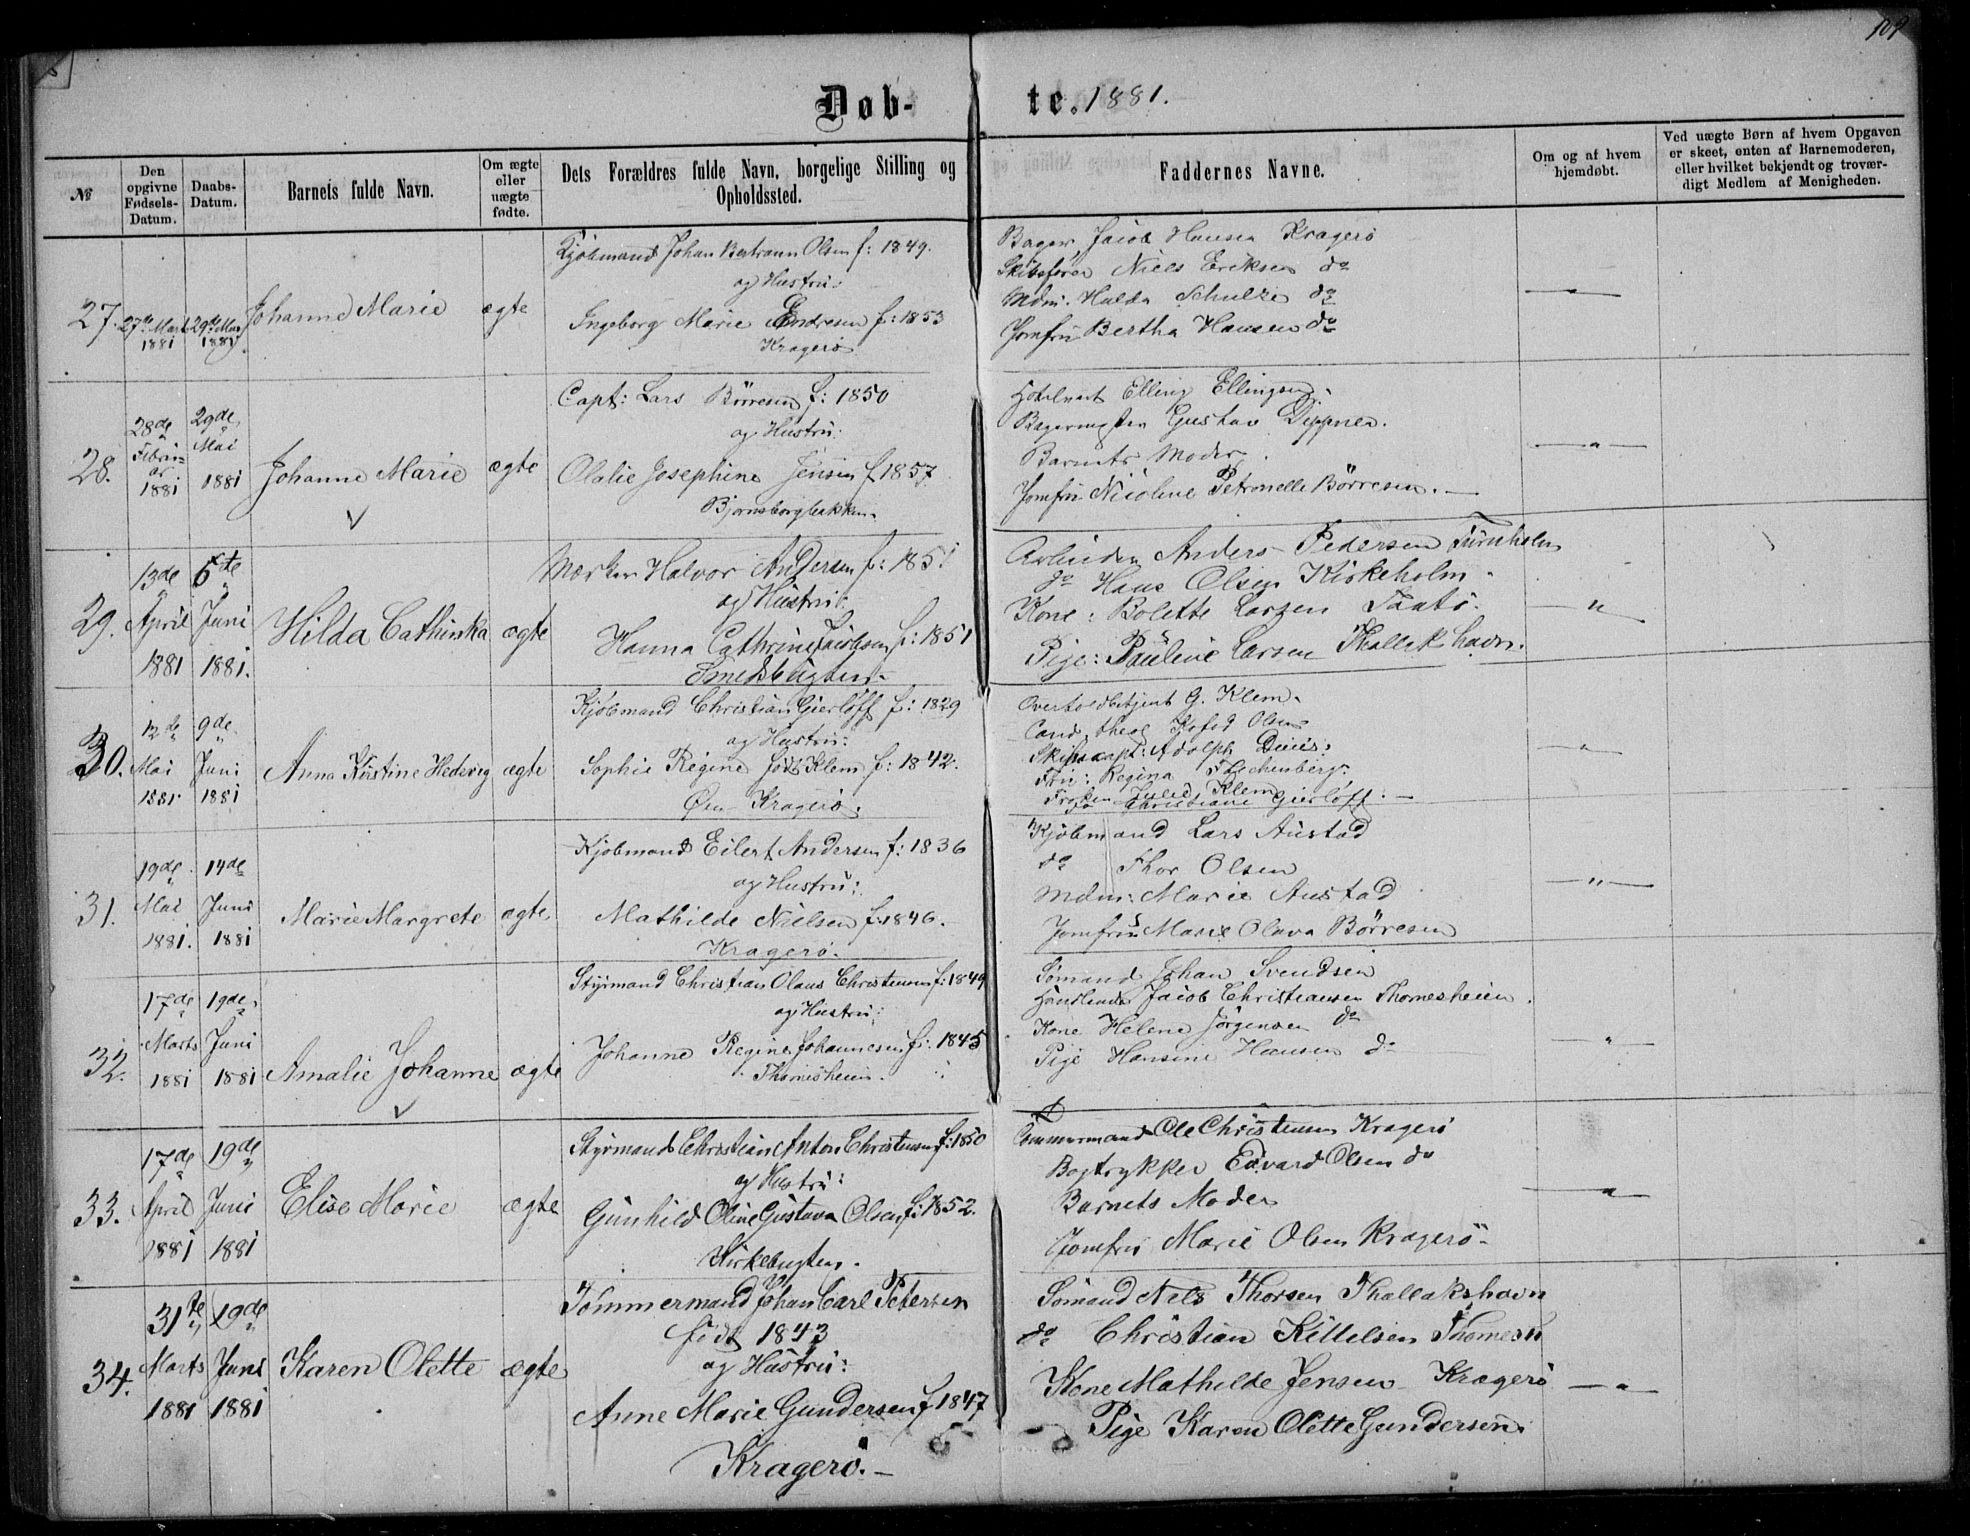 109
Døb-te. 1881.
№
Den opgivne Fødsels-Datum.
Daabs-Datum.
Barnets fulde Navn.
Om ægte eller uægte fødte.
Dets Forældres fulde Navn, borgelige Stilling og Opholdssted.
Faddernes Navne.
Om og af hvem hjemdøbt.
Ved uægte Børn af hvem Opgaven er skeet, enten af Barnemoderen, eller hvilket bekjendt og trovær-digt Medlem af Menigheden.
27. 27de Marts 1881 29de Mai 1881 Johanne Marie ægte
Kjöbmand Johan Bertrann Olsen f: 1849.
og Hustru:
Ingeborg Marie Endresen f: 1853
Kragerö
Bager, Jacob Hansen Kragerö
Skibsförer Niels Eriksen do
Mdm. Hulda Schulze do
Jomfru Bertha Hansen do
28. 28de Februar 1881 29de Mai 1881 Johanne Marie ægte
Capt: Lars Börresen f: 1850
og Hustru:
Olalie Josephine Jensen f 1857
Bjørnsborgbakken.
Hotelvert Elling Ellingsen.
Bagermester Gustav Deppner.
Barnets Moder.
Jomfru Nicoline Petronelle Börresen.
29. 13de April 1881 6te Juni 1881. Hilda Cathinka ægte
Mærker Halvor Andersen f: 1851
og Hustru:
Hanna Cathrine Jacobsen f: 1851
Smedsbugten.
Arbeider Anders Pedersen Furuholm
do Hans Olsen Kirkeholm
Kone: Bolette Larsen Taatö.
Pige: Pauline Larsen Thallakshavn.
30. 12de Mai 1881 9de Juni 1881 Anna Kirstine Hedevig ægte
Kjöbmand Christian Gierlöff f: 1829
og Hustru:
Sophie Regine født Klem f: 1842.
Øen Kragerö.
Overtoldbetjent G. Klem.
Cand. theol Kofod Olsen
Skibscapt: Adolph
Fru: Regina
Frøken Julie Klem
do Christiane Gierløff.
31. 19de Mai 1881. 14de Juni 1881 Marie Margrete ægte
Kjöbmand Eilert Andersen f: 1836
og Hustru:
Mathilde Nielsen f: 1846.
Kragerö.
Kjöbmand Lars Austad
do Thor Olsen
Mdm: Marie Austad
Jomfru Marie Olava Börresen
32. 17de Marts 1881 19de Juni 1881 Amalie Johanne ægte
Styrmand Christian Olaus Christensen f: 1849
og Hustru:
Johanne Regine Johannesen f: 1845
Thomesheien.
Sömand Johan Svendsen
Handlende Jacob Christiansen Thomesheien.
Kone Helene Jörgensen do
Pige Hansine Hansen do
33. 17de April 1881 19de Juni 1881 Elise Marie ægte
Styrmand Christian Anton Christensen f: 1850
og Hustru:
Gunhild Oline Gustava Olsen f: 1852.
Kirkebugten.
Tömmermand Ole Christensen Kragerö
Bogtrykker Edvard Olsen do
Barnets Moder
Jomfru Marie Olsen Kragerö
34. 31te Marts 1881 19de Juni 1881 Karen Olette ægte
Tömmermand Johan Carl Petersen
född 1843
og Hustru:
Anne Marie Gundersen f 1847
Kragerö.
Sömand Nels Thorsen Thallakshavn
do Christian Kittelsen Thomesh
Kone Mathilde Jensen Kragerö
Pige Karen Olette Gundersen